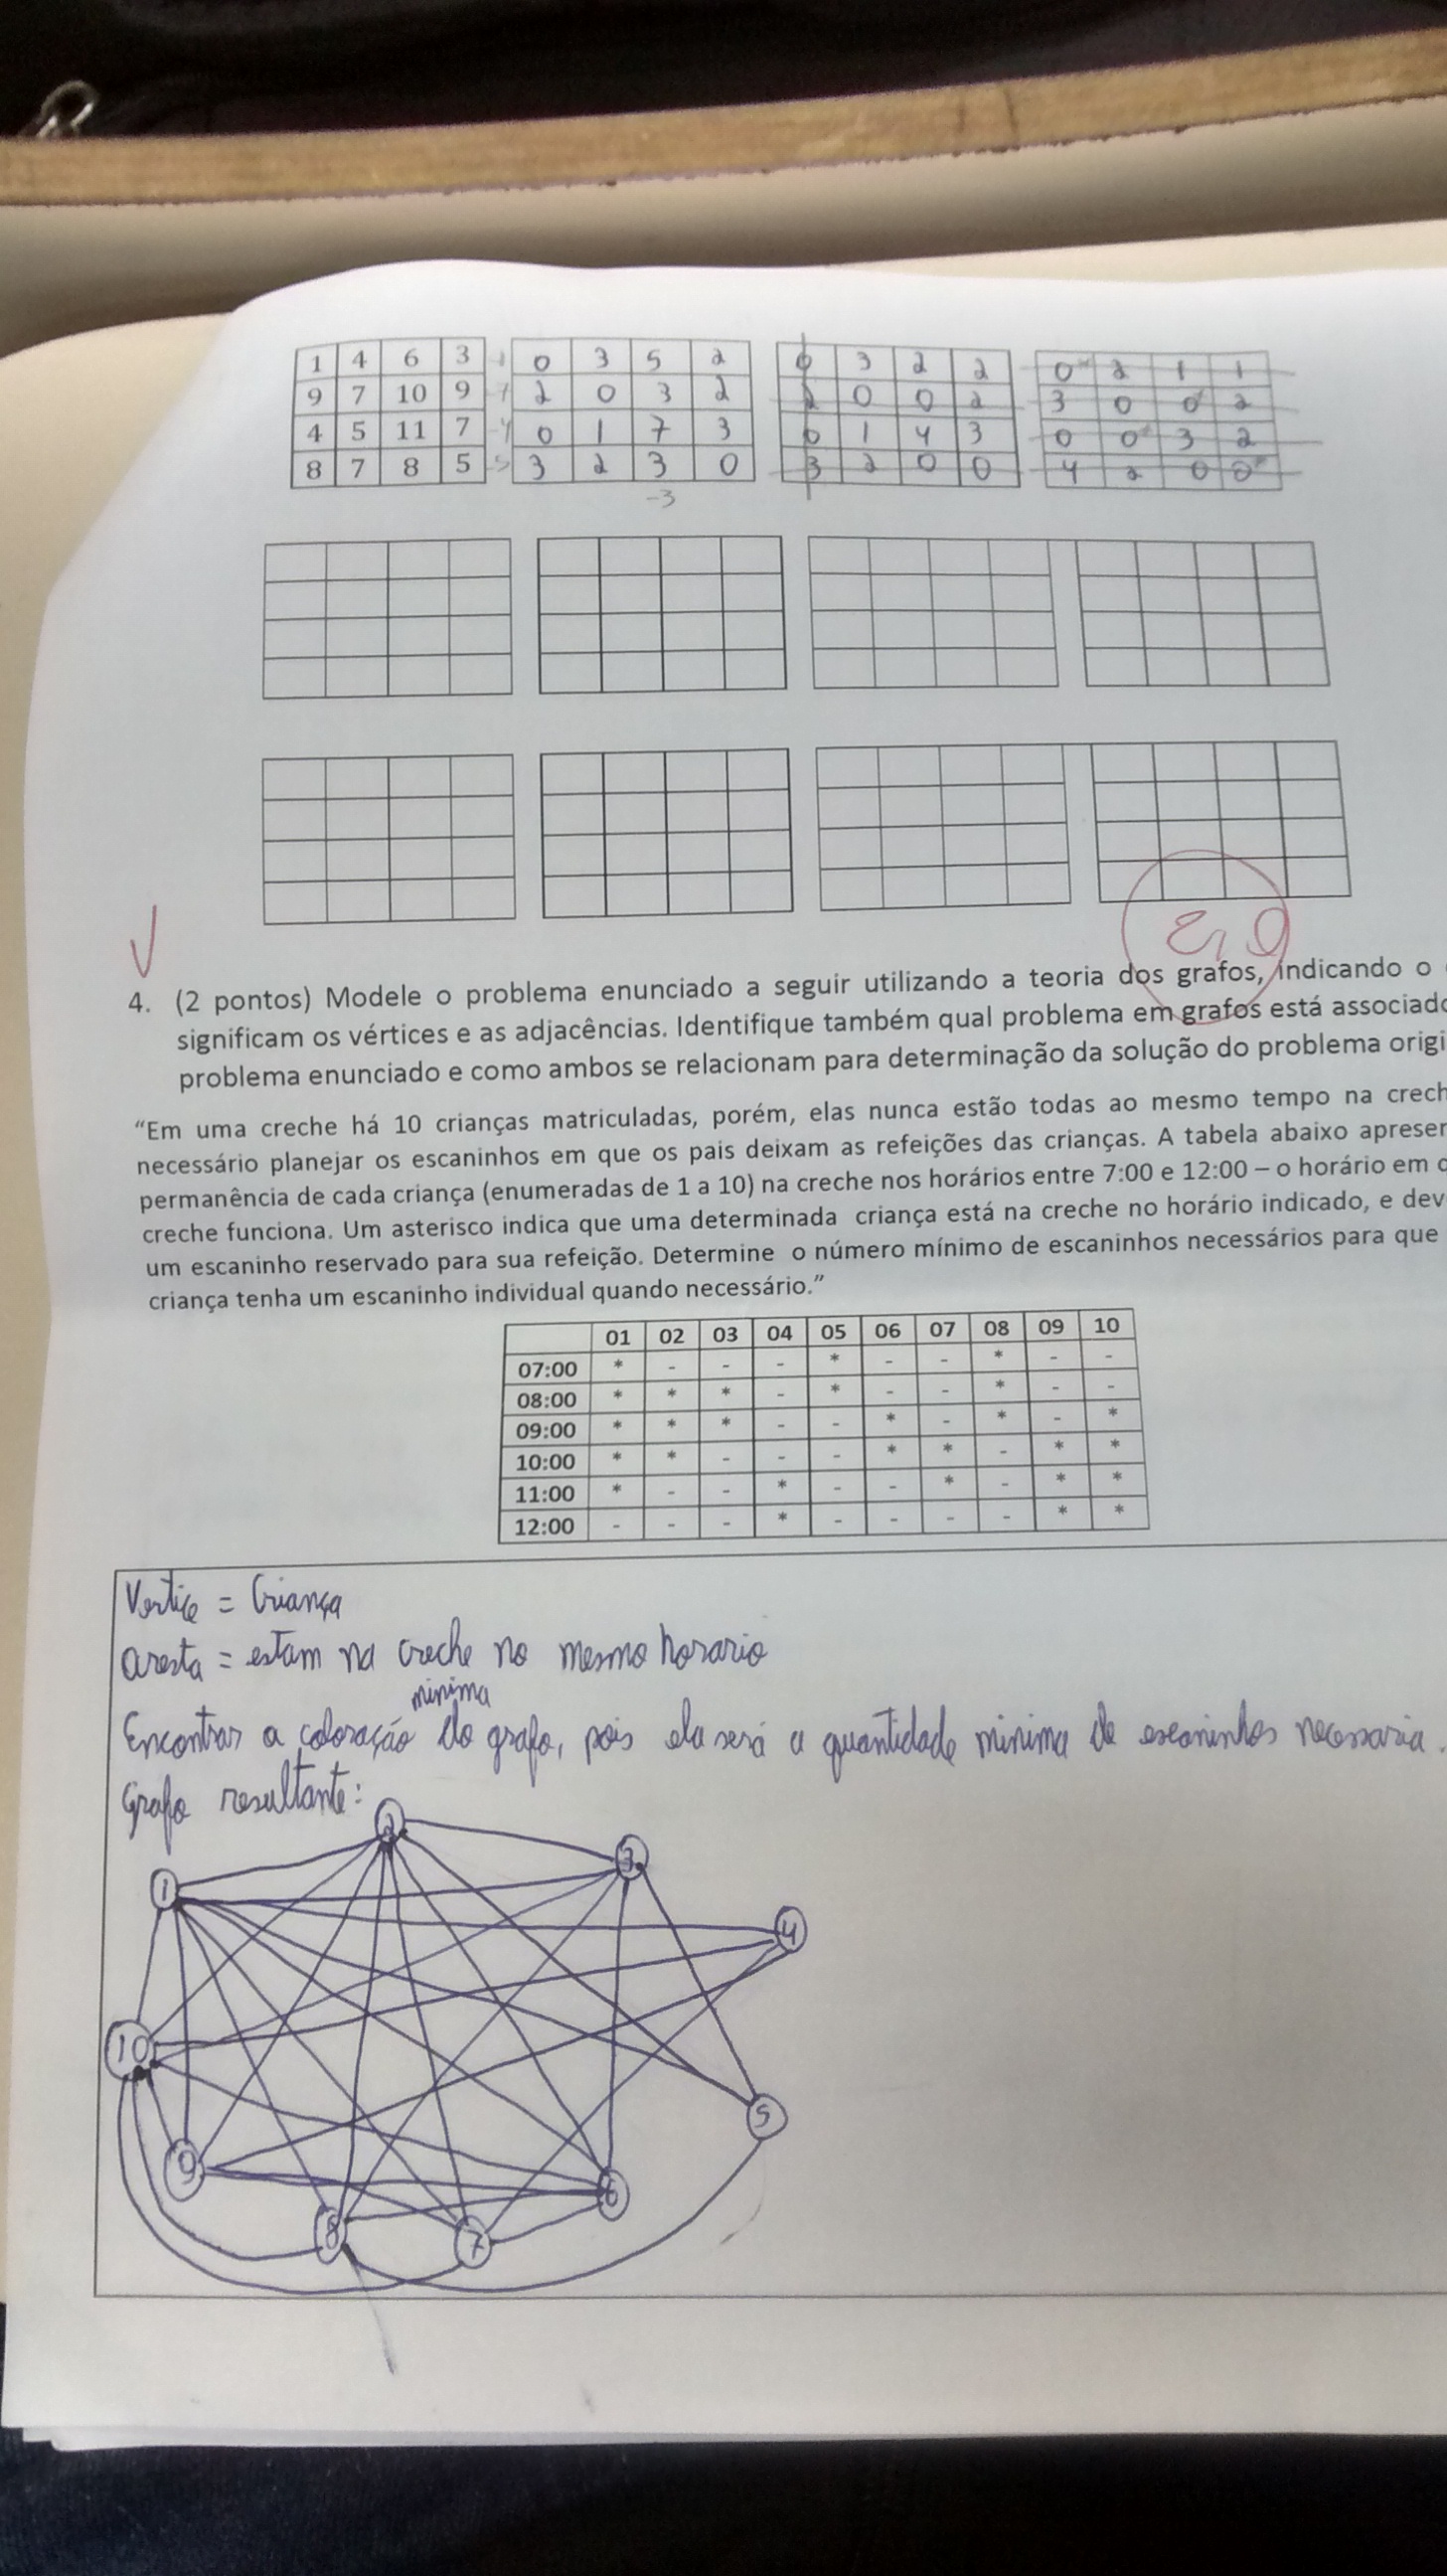 1 4 6 3 -1 0 3 5 2 0 3 2 2 0 2 1 1
9 7 10 9 -7 2 0 3 2 2 0 0 2 3 0 0 2
4 5 11 7 -4 0 1 7 3 0 1 4 3 0 0 3 2
8 7 8 5 -5 3 2 3 0 3 2 0 0 4 2 0 0
-3
4. (2 pontos) Modele o problema enunciado a seguir utilizando a teoria dos grafos, indicando o
significam os vértices e as adjacências. Identifique também qual problema em grafos está associado
problema enunciado e como ambos se relacionam para determinação da solução do problema origi
“Em uma creche há 10 crianças matriculadas, porém, elas nunca estão todas ao mesmo tempo na crech
necessário planejar os escaninhos em que os pais deixam as refeições das crianças. A tabela abaixo apresen
permanência de cada criança (enumeradas de 1 a 10) na creche nos horários entre 7:00 e 12:00 – o horário em q
creche funciona. Um asterisco indica que uma determinada criança está na creche no horário indicado, e dev
um escaninho reservado para sua refeição. Determine o número mínimo de escaninhos necessários para que
criança tenha um escaninho individual quando necessário.”
01 02 03 04 05 06 07 08 09 10
07:00 * - - - * - - * - -
08:00 * * * - * - - * - -
09:00 * * * - - * - * - *
10:00 * * - - - * * - * *
11:00 * - - * - - * - * *
12:00 - - - * - - - - * *
Vertice = Criança
aresta = estam na creche no mesmo horario
Encontrar a coloração minima do grafo, pois ela será a quantidade minima de escaninhos necessaria.
Grafo resultante:
2
3
1
4
10
5
9
6
8
7